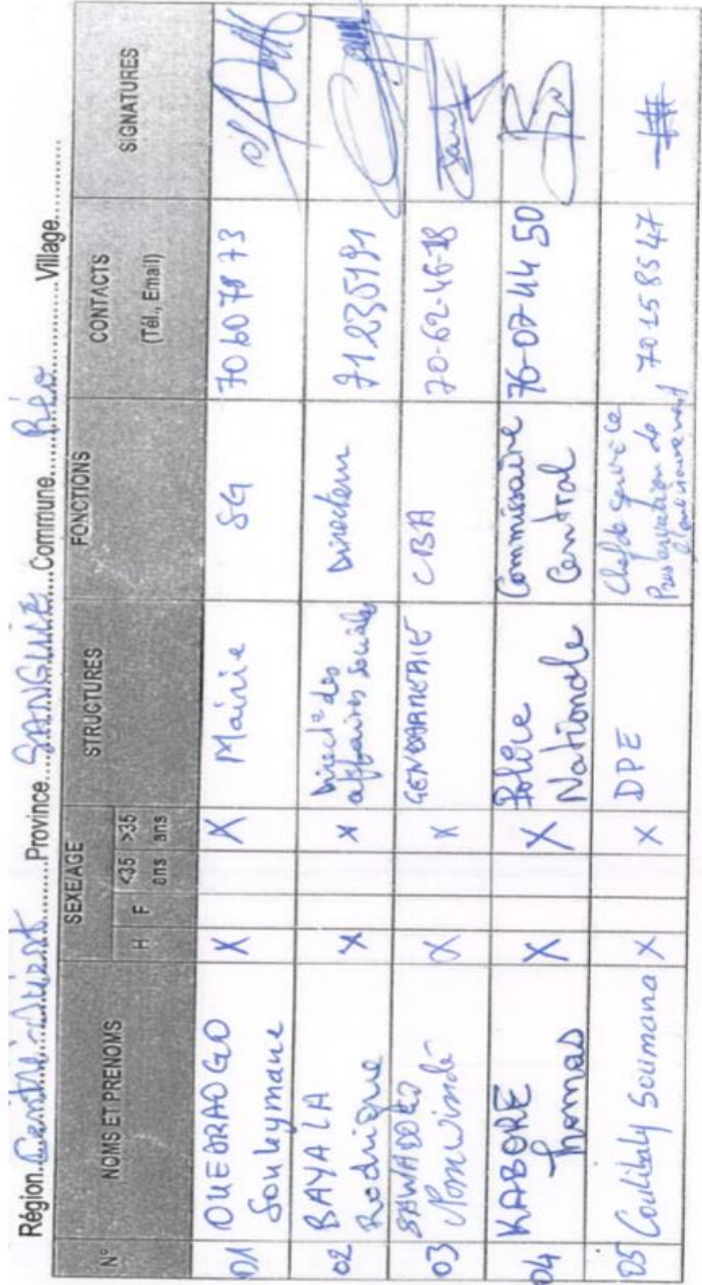 Région Centre-Ouest Province SANGUIE Commune Réo Village
N° NOMS ET PRENOMS SEXE/AGE STRUCTURES FONCTIONS CONTACTS (Tél., Email) SIGNATURES
H F <35 ans >35 ans
01 OUEDRAOGO Souleymane X X Mairie SG
02 BAYALA Rodrigue X X Direct° des affaires sociales Directeur 71235191
03 SAWADOGO X X GENDARMERIE CBA 70-62-46-18
04 KABORE Thomas X X Police Nationale Commissaire Central 76-07 44 50
05 Coulibaly Soumana X X DPE Chef de service Preservation de l'environnement 70158547